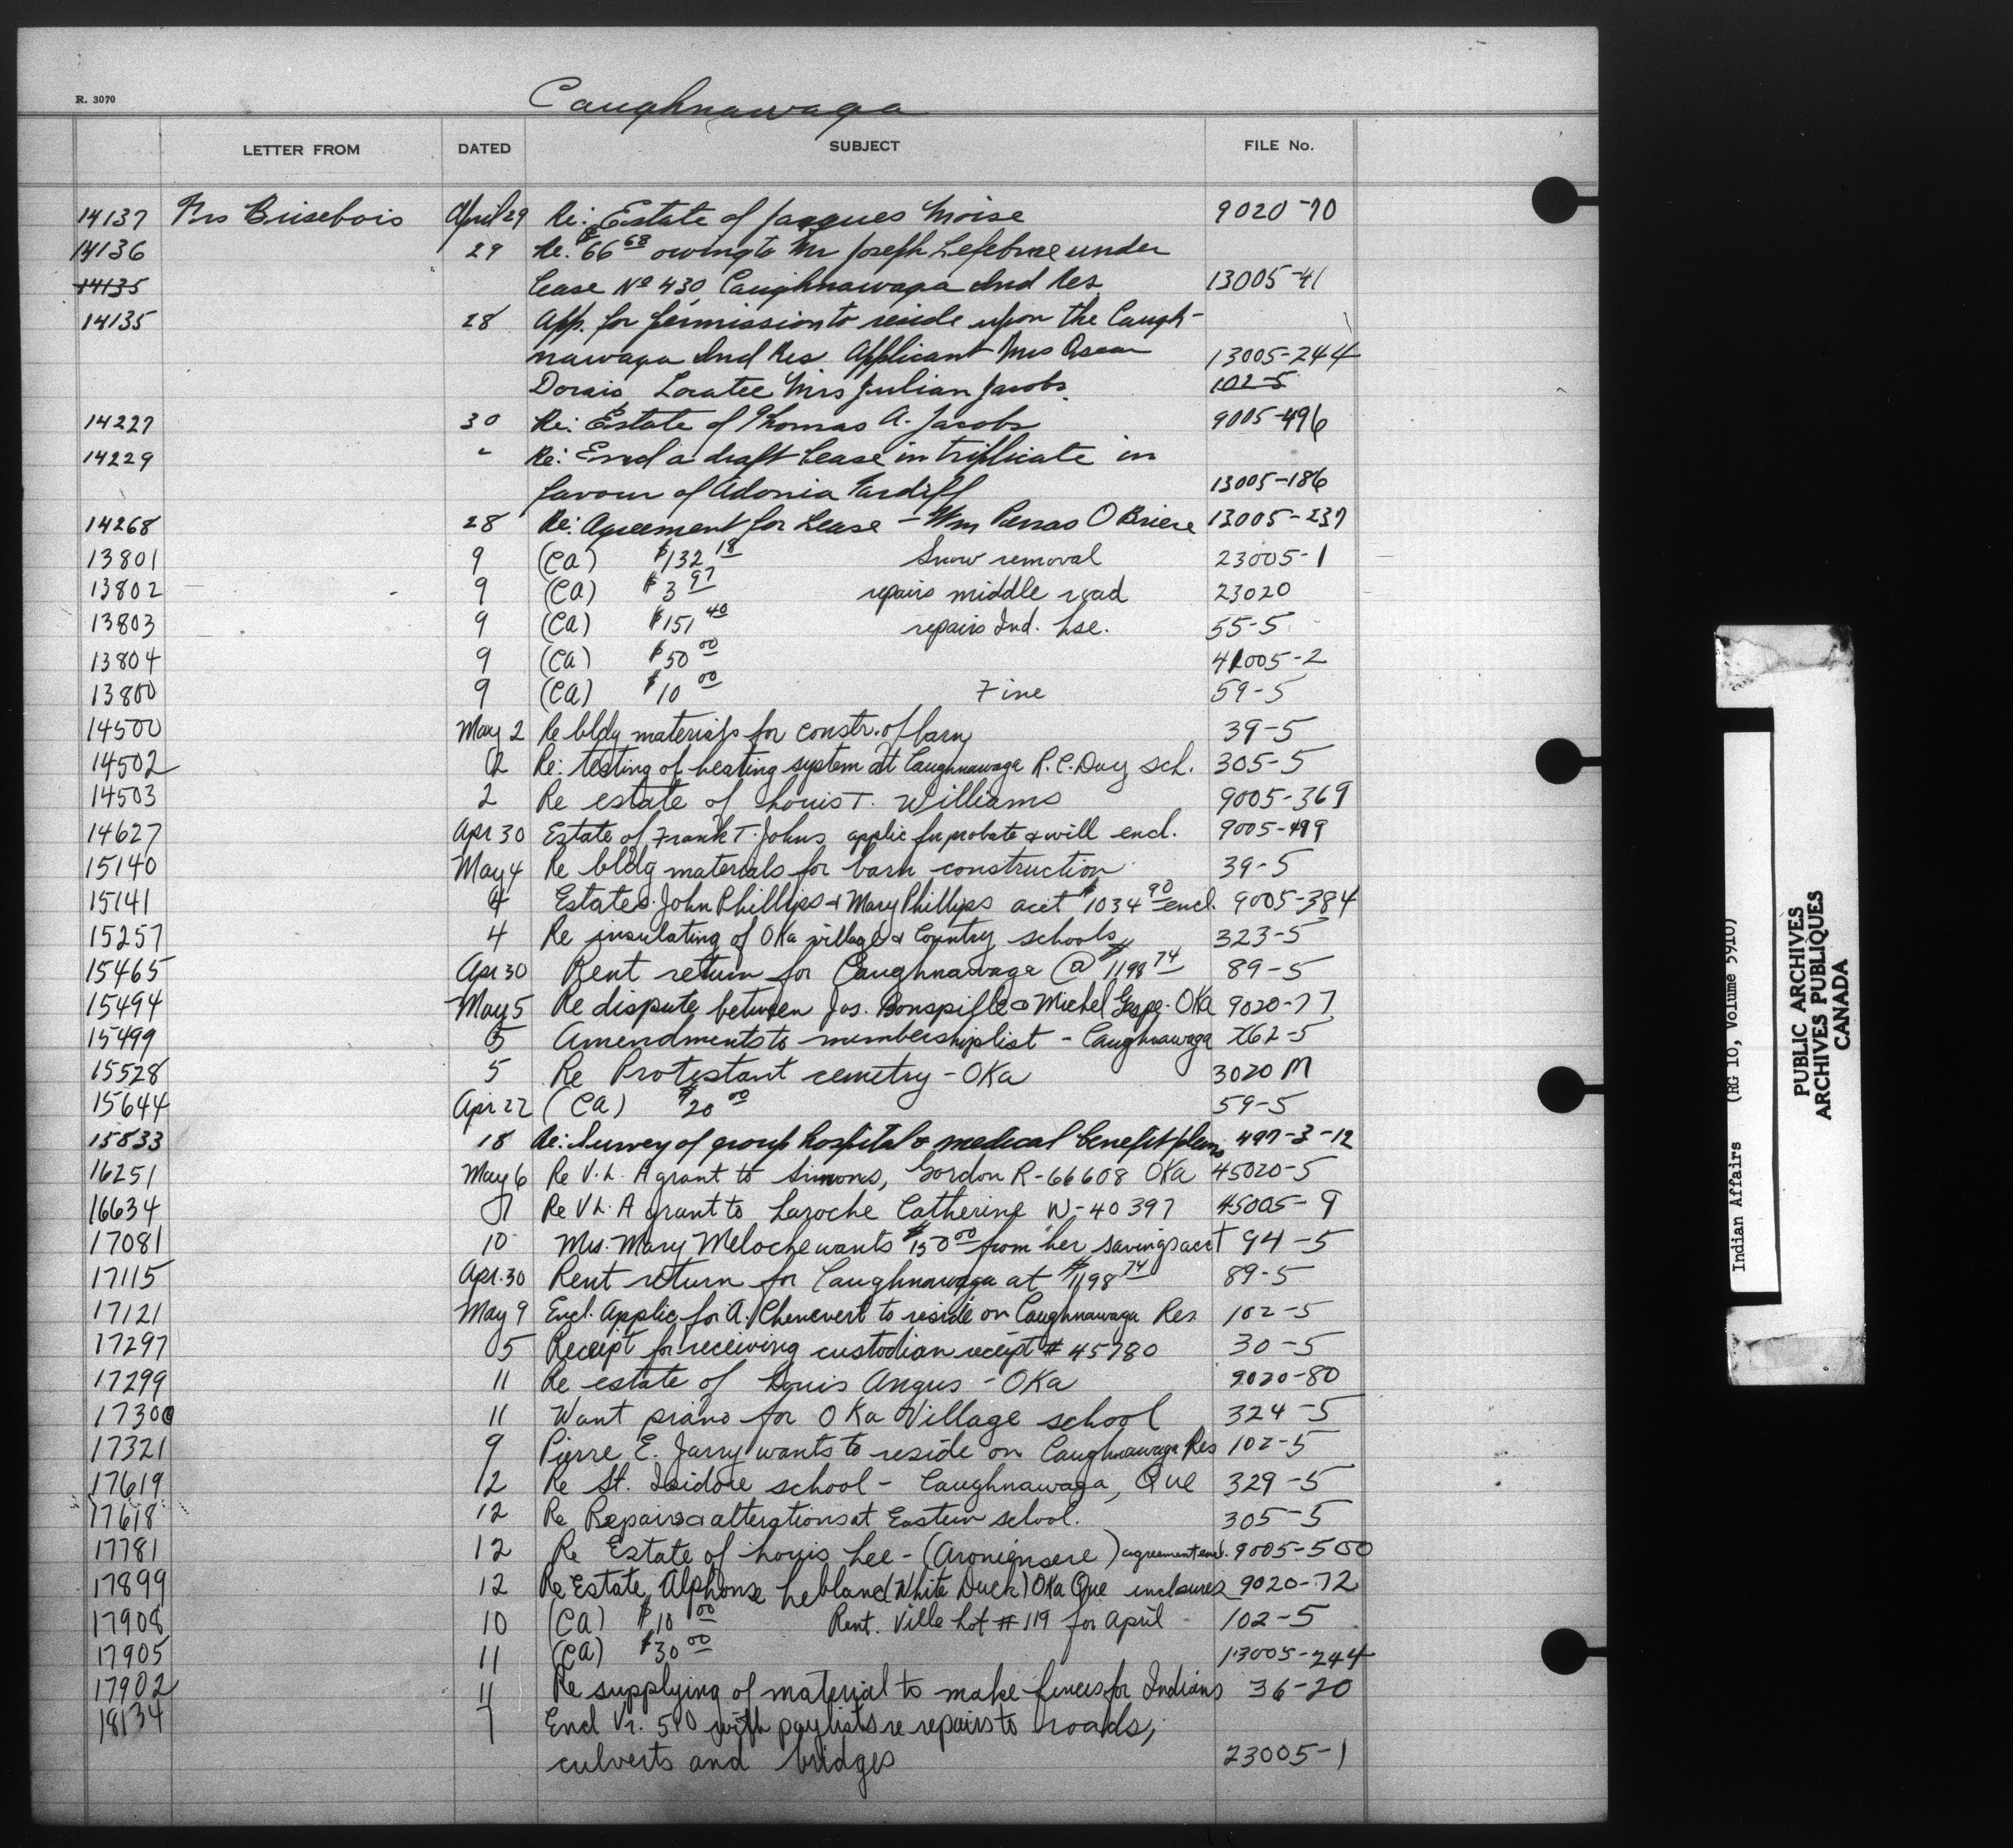 R. 3070
Caughnawaga
LETTER FROM DATED SUBJECT FILE No.
14137 Mrs Brisebois April 29 Re: Estate of Jacques Moise 9020-70
14136 29 Re: $66 68 owing to Mr Joseph Lefebvre under
14135 lease No 430, Caughnawaga Ind Res. 13005-41
14135 28 App. for permission to reside upon the Caugh-
nawaga Ind Res Applicant Mrs Oscar 13005-244
Dorais Locatee Mrs Julian Jacobs. 102-5
14227 30 Re: Estate of Thomas A. Jacobs 9005-496
14229 " Re: Encl a draft lease in triplicate in
favour of Adonia Tardiff 13005-186
14268 28 Re: Agreement for Lease - Wm Perras O Briere 13005-237
13801 9 (CA) $132 18 Snow removal 23005-1
13802 9 (CA) $3 97 repairs middle road 23020
13803 9 (CA) $151 40 repairs Ind. hse. 55-5
13804 9 (CA) $50 00 41005-2
13800 9 (CA) $10 00 Fine 59-5
14500 May 2 Re bldg materials for constr. of barn 39-5
14502 2 Re: testing of heating system at Caughnawaga R.C. Day sch. 305-5
14503 2 Re estate of Louis T. Williams 9005-369
14627 Apr 30 Estate of Frank T. Johns applic for probate & will encl. 9005-499
15140 May 4 Re bldg materials for barn construction 39-5
15141 4 Estates John Phillips & Mary Phillips acct $1034 90 encl. 9005-384
15257 4 Re insulating of Oka village & Country schools 323-5
15465 Apr 30 Rent return for Caughnawaga @ $1198 74 89-5
15494 May 5 Re dispute between Jos. Bonspille & Michel Gaspe - Oka 9020-77
15499 5 Amendments to membership list - Caughnawaga 762-5
15528 5 Re Protestant cemetry - Oka 3020 M
15644 Apr 22 (CA) $20 00 59-5
15833 18 Re: Survey of group hospital & medical benefit plans 497-3-12
16251 May 6 Re V.L. A grant to Simons, Gordon R-66608 Oka 45020-5
16634 7 Re V L. A grant to Laroche Catherine W-40397 45005-9
17081 10 Mrs. Mary Meloche wants $150 00 from her savings acct 94-5
17115 Apr. 30 Rent return for Caughnawaga at $1198 74 89-5
17121 May 9 Encl. Applic for A. Chenevert to reside on Caughnawaga Res 102-5
17297 5 Receipt for receiving custodian receipt # 45780 30-5
17299 11 Re estate of Louis Angus - Oka 9020-80
17300 11 Want piano for Oka Village school 324-5
17321 9 Pierre E. Jarry wants to reside on Caughnawaga Res 102-5
17619 12 Re St. Isidore school - Caughnawaga, Que 329-5
17618 12 Re Repairs & alterations at Eastern school. 305-5
17781 12 Re Estate of Louis Lee - (Aroniensere) agreement encl. 9005-500
17899 12 Re Estate Alphonse Leblanc (White Duck) Oka Que inclosures 9020-72
17908 10 (CA) $10 00 Rent. Ville Lot # 119 for April 102-5
17905 11 (CA) $30 00 13005-244
17902 11 Re supplying of material to make fences for Indians 36-20
18134 7 Encl Vr. 510 with paylists re repairs to roads,
culverts and bridges 23005-1
Indian Affairs (RG 10, Volume 5910)
PUBLIC ARCHIVES
ARCHIVES PUBLIQUES
CANADA